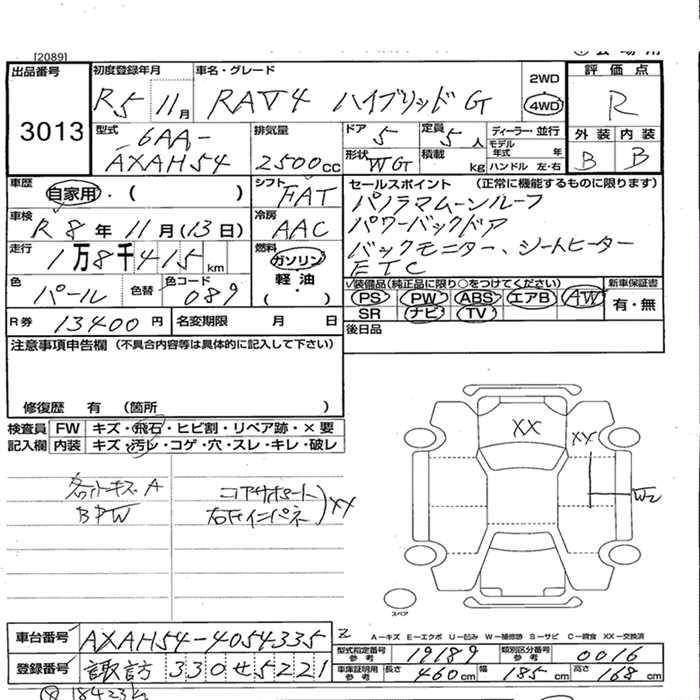 [2089]
出品番号
3013
初度登録年月
R5 11月
車名・グレード
RAV4 ハイブリッドG
2WD
4WD
評価点
R
外装 内装
B B
型式
6AA-
AXAH54
排気量
2500cc
ドア
5
定員
5人
ディーラー・並行
モデル年式 年
形状
WG
積載
kg
ハンドル 左・右
車歴
自家用・( )
シフト
FAT
セールスポイント (正常に機能するものに限ります)
パノラマムーンルーフ
パワーバックドア
バックモニター、シートヒーター
ETC
車検
R8年11月(13日)
冷房
AAC
走行
1万8千415km
燃料
ガソリン
軽油
( ・ )
色
パール
色替
色コード
089
√装備品(純正品に限り○をつけてください)
PS PW ABS エアB AW
SR ナビ TV
新車保証書
有・無
R券 13400円
名変期限 月 日
後日品
注意事項申告欄 (不具合内容等は具体的に記入して下さい)
修復歴 有 (箇所 )
検査員 FW キズ・飛石・ヒビ割・リペア跡・×要
記入欄 内装 キズ・汚レ・コゲ・穴・スレ・キレ・破レ
キズA
BPW
コアサポート
右Fインパネ
XX
XX
XX
W2
スペア
A−キズ E−エクボ U−凹み W−補修跡 S−サビ C−腐食 XX−交換済
車台番号 AXAH54-4054335
登録番号 諏訪 330せ5221
型式指定番号
参考
19189
類別区分番号
参考
0016
車庫証明用
参考
長さ 460cm 幅 185cm 高さ 168cm